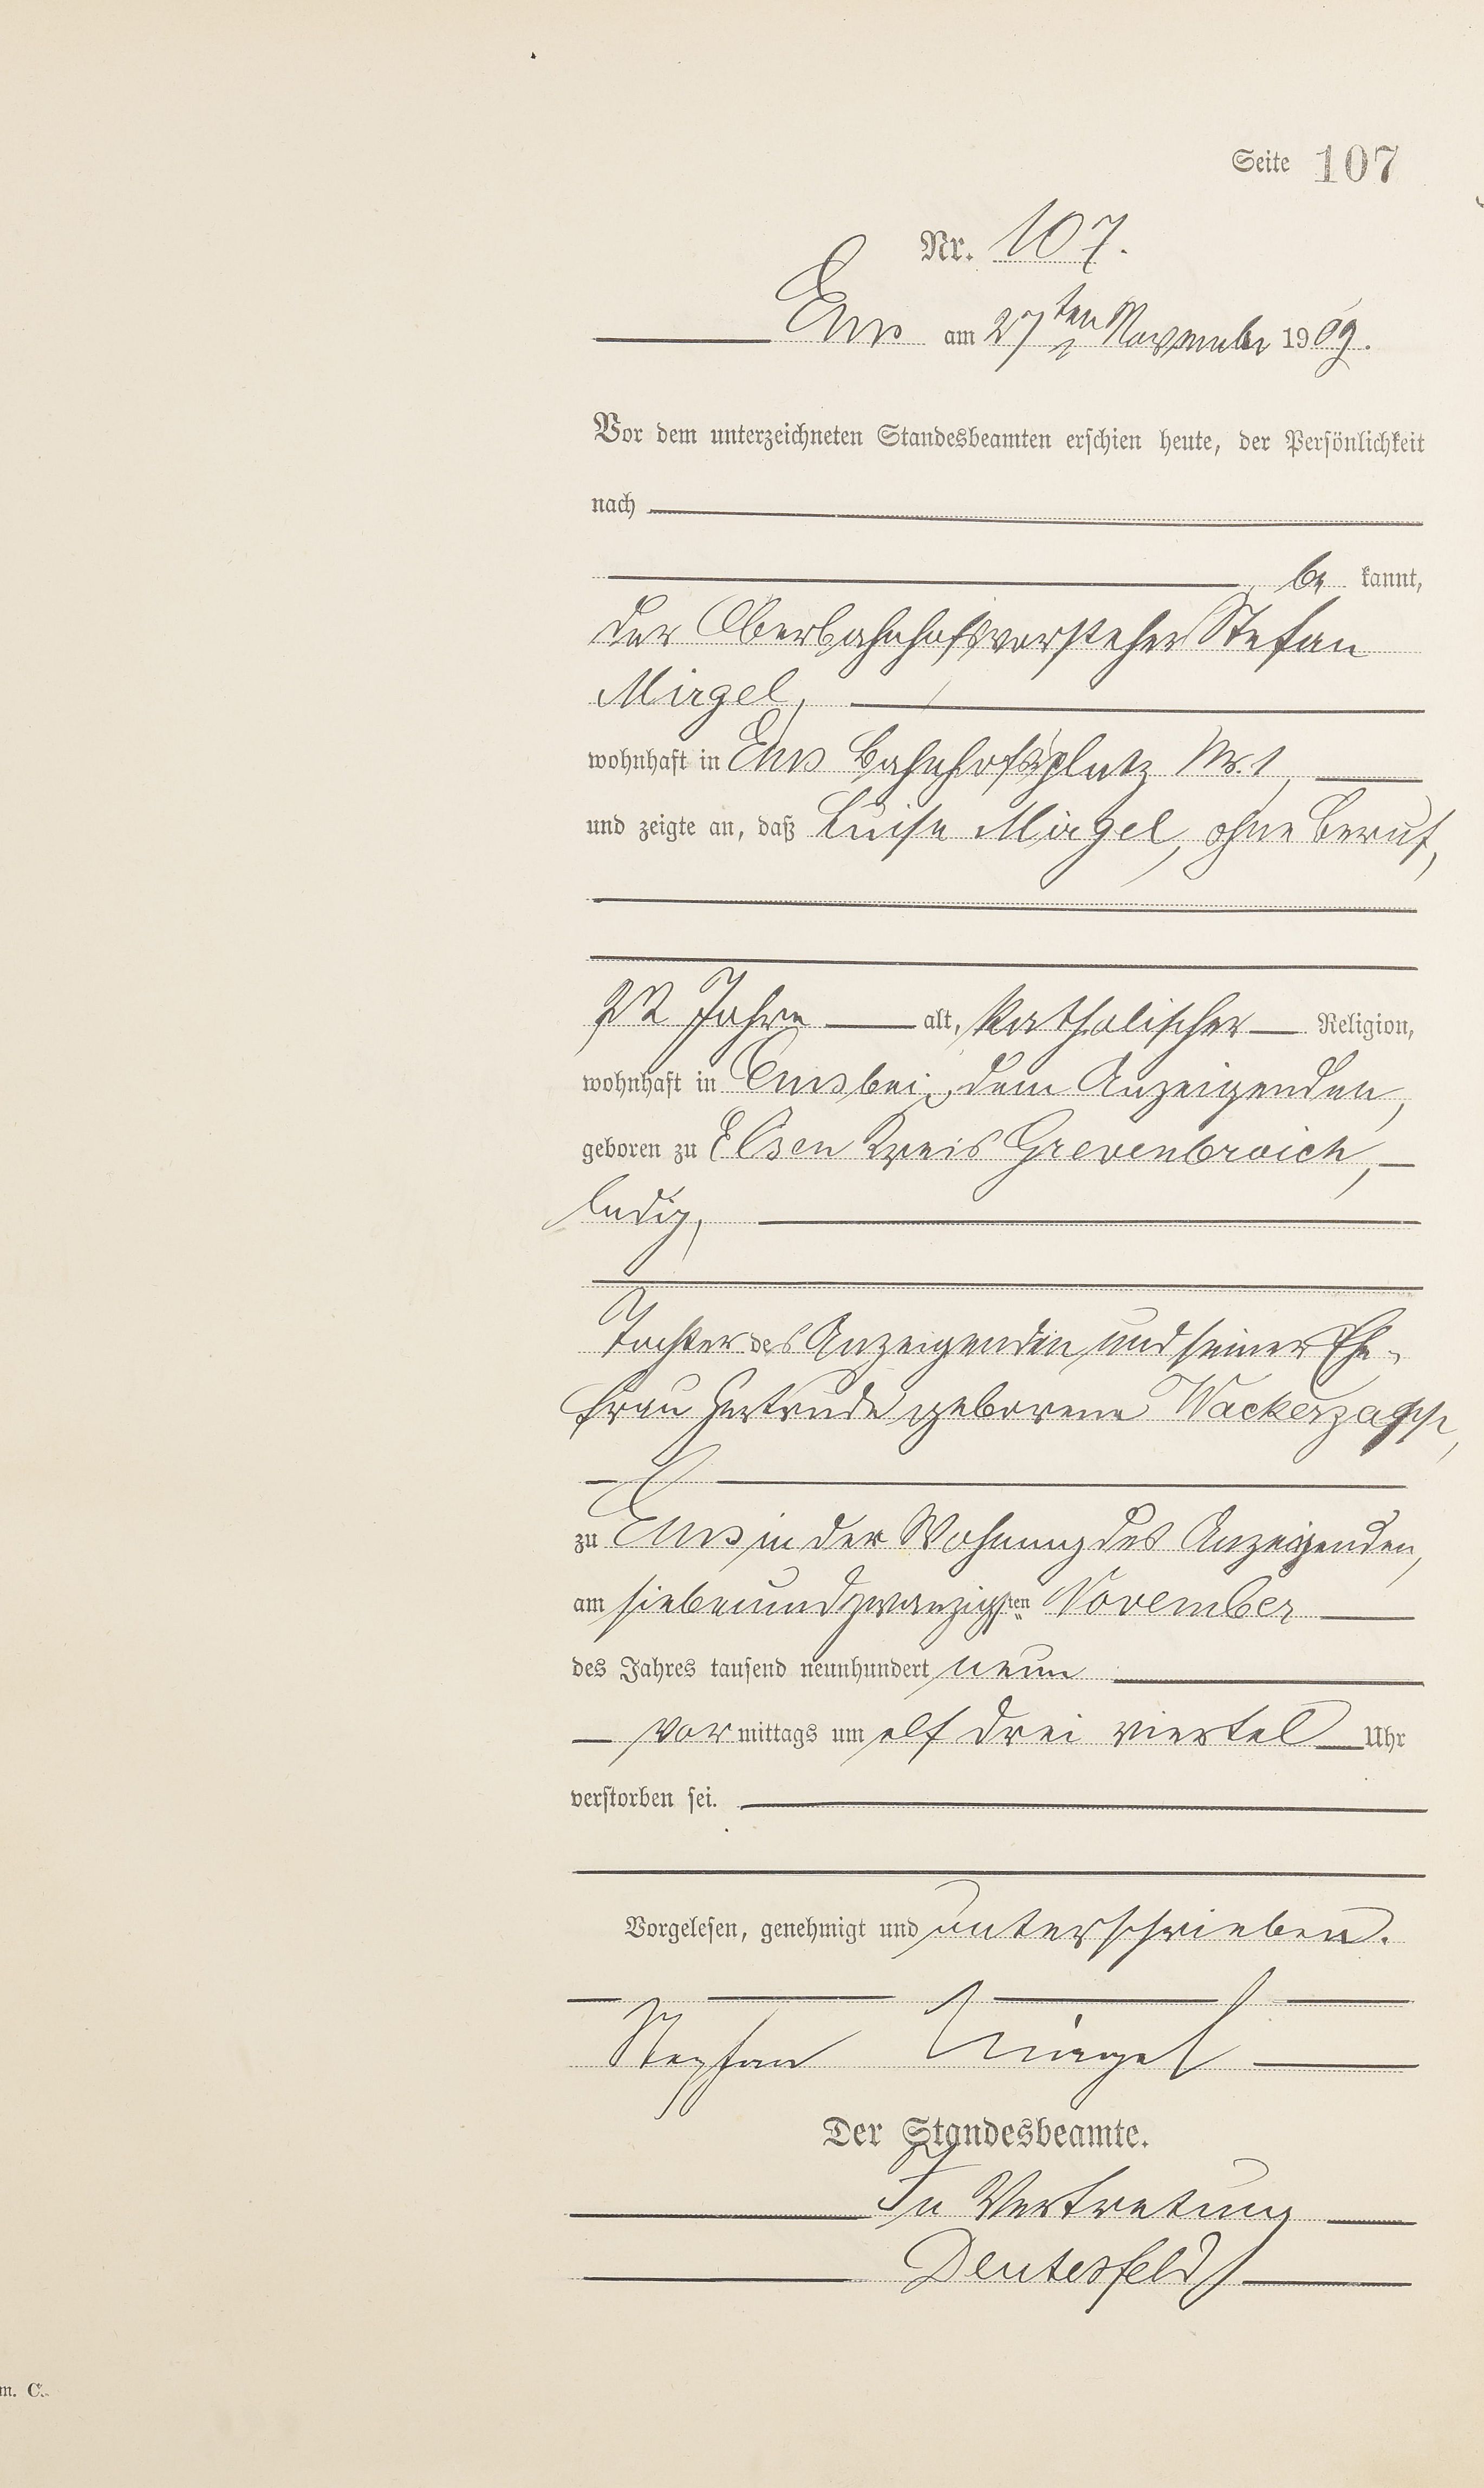 Seite 107
Nr. 107.
Ems am 27ten November 1909.
Vor dem unterzeichneten Standesbeamten erschien heute, der Persönlichkeit
nach
be kannt,
der Oberbahnhofsvorsteher Stefan
Mirgel,
wohnhaft in Ems Bahnhofsplatz Nr. 1,
und zeigte an, daß Luise Mirgel, ohne Beruf,
22 Jahre alt, katholischer Religion,
wohnhaft in Ems bei dem Anzeigenden,
geboren zu Elsen Kreis Grevenbroich,
ledig,
Tochter des Anzeigenden und seiner Ehe-
frau Gertrude geborene Wackerzapp,
zu Ems in der Wohnung des Anzeigenden,
am siebenundzwanzigsten November
des Jahres tausend neunhundert neun
vor mittags um elf drei viertel Uhr
verstorben sei.
Vorgelesen, genehmigt und unterschrieben.
Stephan Mirgel
Der Standesbeamte.
In Vertretung
Deutesfeld
m. C.